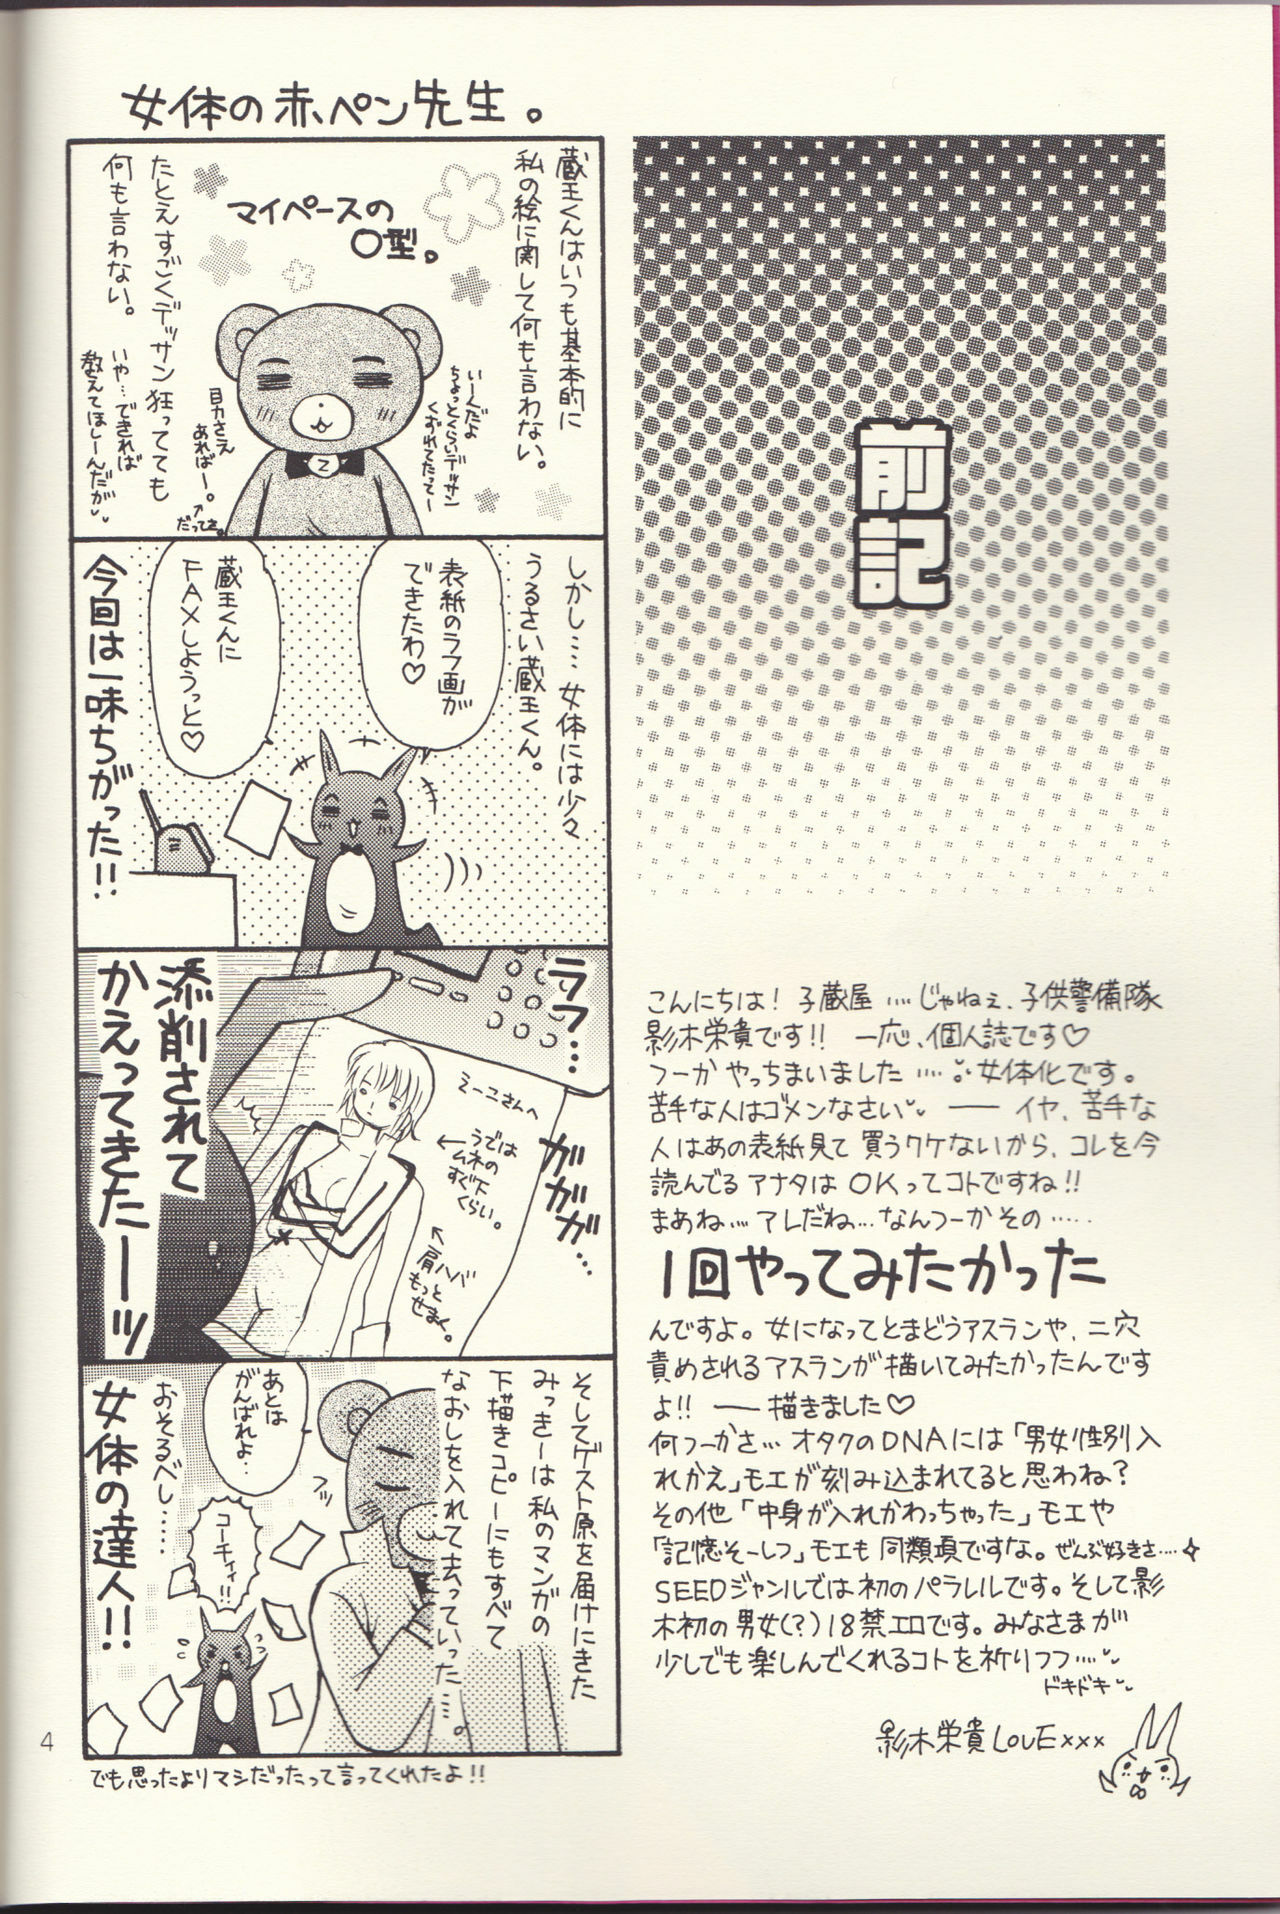 前記
こんにちは!子蔵屋....じゃねぇ、子供警備隊
影木栄貴です!!一応、個人誌です♡
フーかやっちまいました....女体化です。
苦手な人はゴメンなさい ―― イヤ、苦手な
人はあの表紙見て買うワケないから、コレを今
読んでるアナタはOKってコトですね!!
まあね...アレだね...なんつーかその.....
1回やってみたかった
んですよ。女になってとまどうアスランや、二穴
責めされるアスランが描いてみたかったんです
よ!! ―― 描きました♡
何つーかさ...オタクのDNAには「男女性別入
れかえ」モエが刻み込まれてると思わね?
その他「中身が入れかわっちゃった」モエや
「記憶そーしつ」モエも同類項ですな。ぜんぶ好きさ....
SEEDジャンルでは初のパラレルです。そして影
木初の男女(?)18禁エロです。みなさまが
少しでも楽しんでくれるコトを祈りつつ....
ドキドキ
影木栄貴LOVE×××
女体の赤ペン先生。
蔵王くんはいつも基本的に
私の絵に関して何も言わない。
マイペースの
O型。
たとえすごくデッサン狂ってても
何も言わない。
いーんだよ
ちょっとくらいデッサン
くずれてたって〜
目力さえ
あればー。
←だってさ。
いや...できれば
教えてほしーんだが
しかし....女体には少々
うるさい蔵王くん。
表紙のラフ画が
できたわ♡
蔵王くんに
FAXしようっと♡
今回は一味ちがった!!
ラフ...
ガガガ...
えーこさんへ
←うでは
ムネの
すぐ下
くらい。
←肩ハバ
もっと
せまく。
添削されて
かえってきたーッ
そしてゲスト原を届けにきた
みっきーは私のマンガの
下描きコピーにもすべて
なおしを入れて去っていった....。
フッ
あとは
がんばれよ..
コーチィ!!
おそるべし......
女体の達人!!
でも思ったよりマシだったって言ってくれたよ!!
4